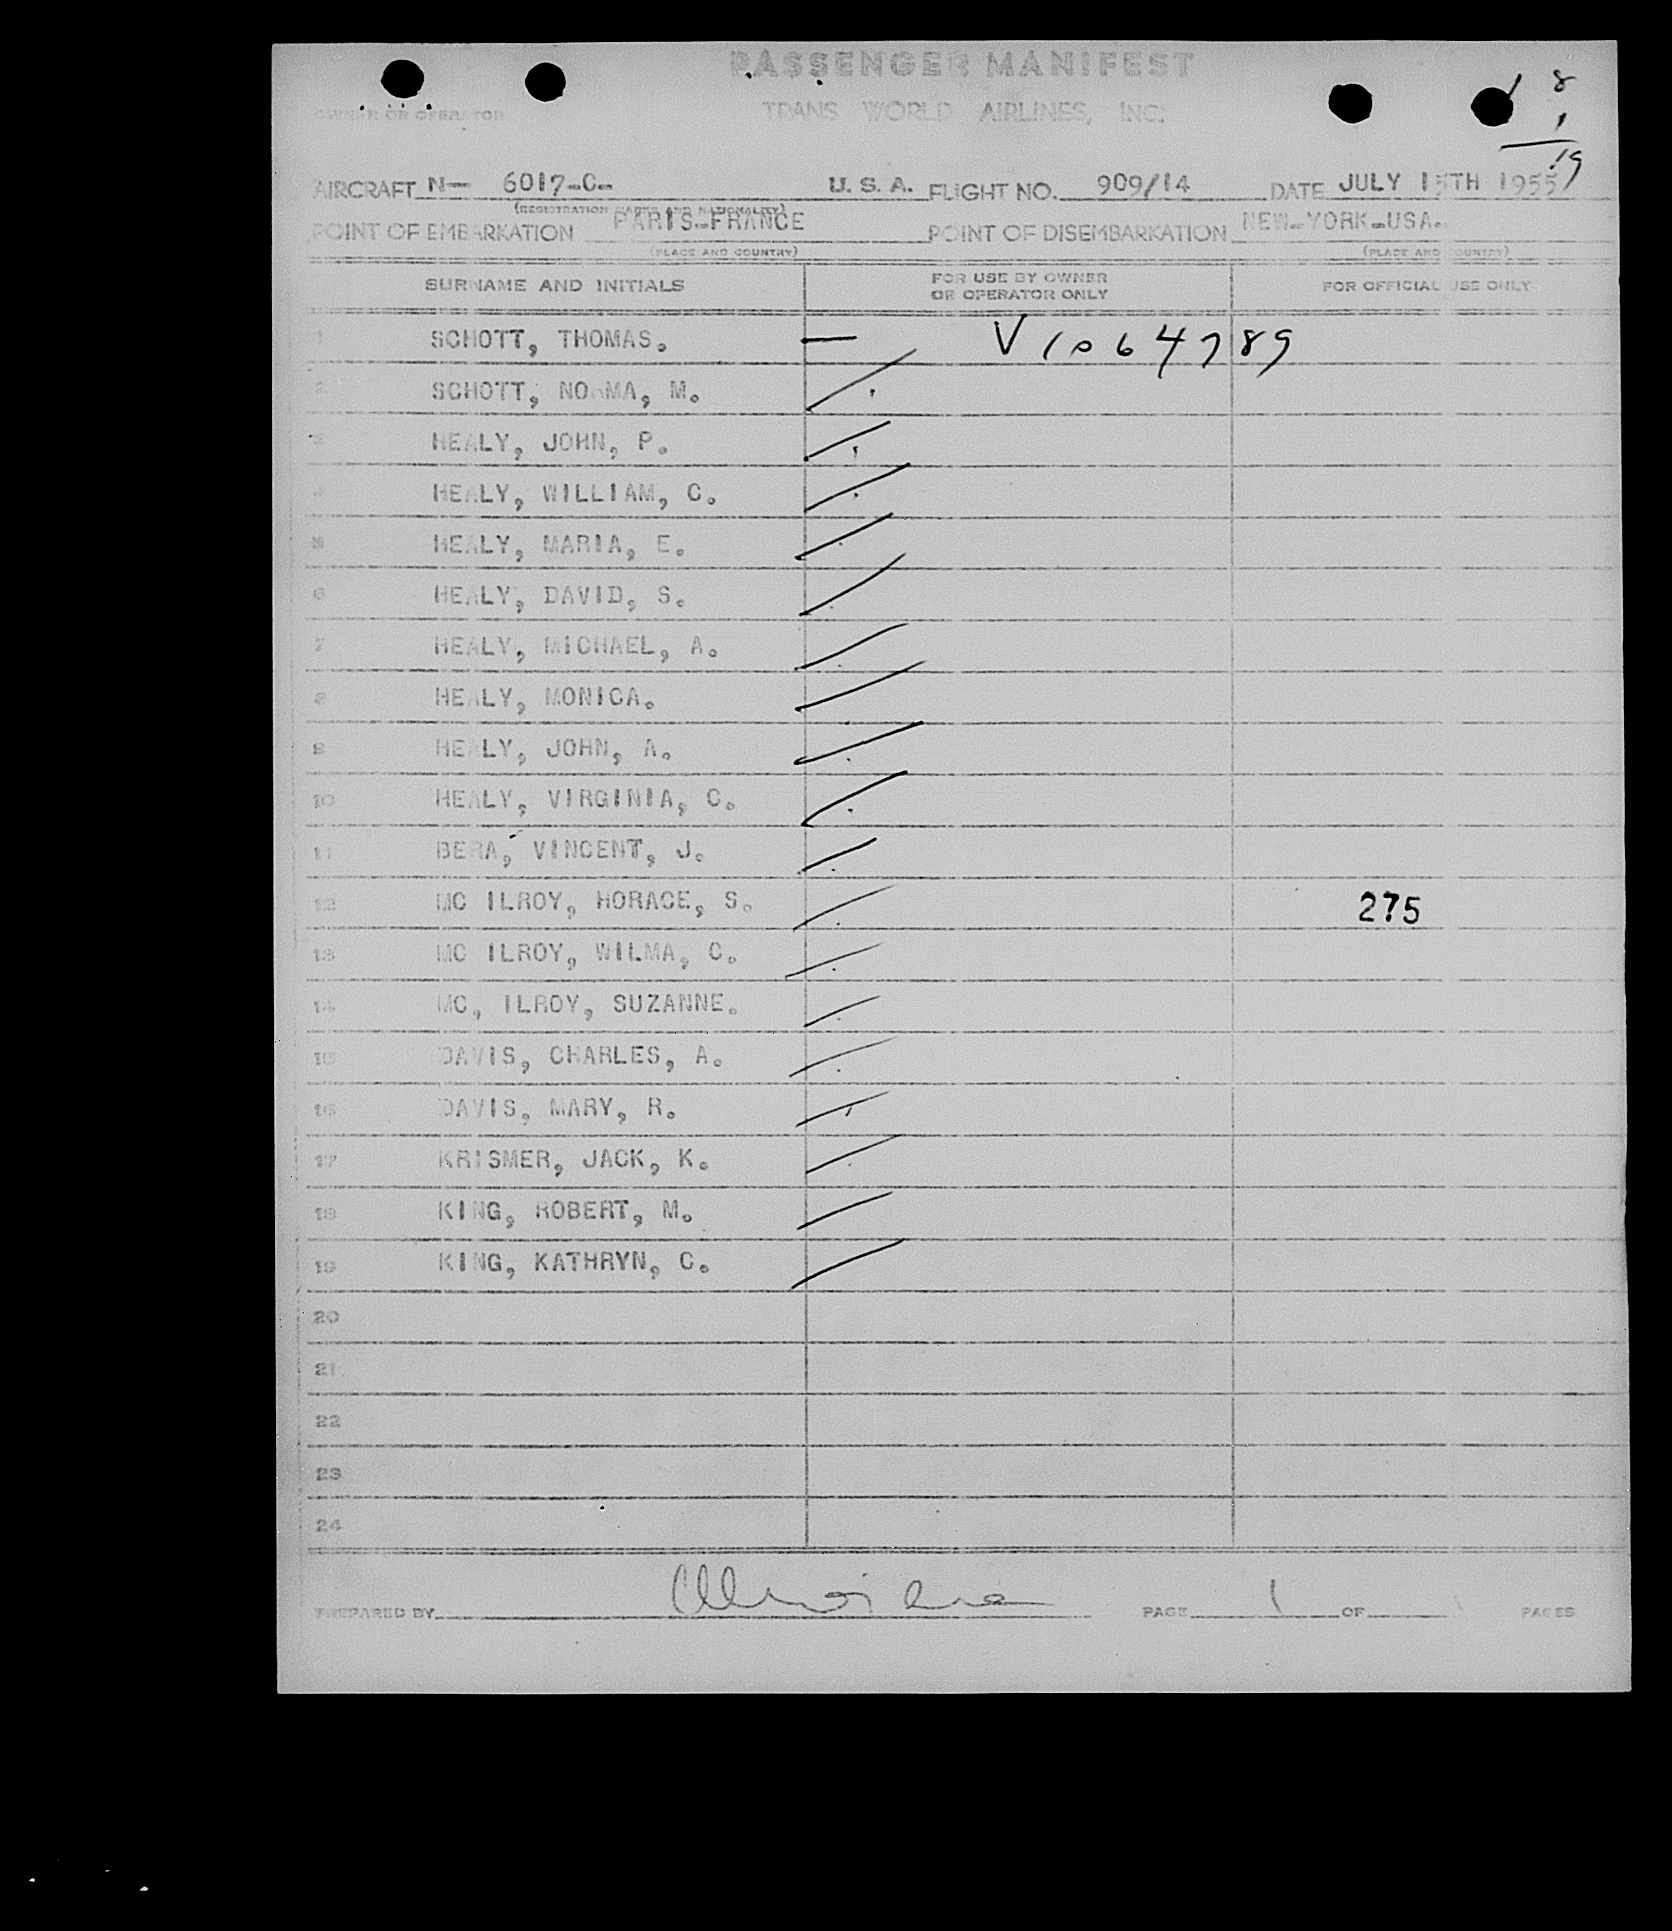 PASSENGER MANIFEST
OWNER OR OPERATOR TRANS WORLD AIRLINES, INC.
18
1
19
AIRCRAFT N— 6017-C- U. S. A. FLIGHT NO. 909/14 DATE JULY 15TH 1955
(REGISTRATION MARKS AND NATIONALITY)
POINT OF EMBARKATION PARIS-FRANCE POINT OF DISEMBARKATION NEW-YORK-USA.
(PLACE AND COUNTRY) (PLACE AND COUNTRY)
SURNAME AND INITIALS FOR USE BY OWNER OR OPERATOR ONLY FOR OFFICIAL USE ONLY
1 SCHOTT, THOMAS. — V1064789
2 SCHOTT, NORMA, M.
3 HEALY, JOHN, P.
4 HEALY, WILLIAM, C.
5 HEALY, MARIA, E.
6 HEALY, DAVID, S.
7 HEALY, MICHAEL, A.
8 HEALY, MONICA.
9 HEALY, JOHN, A.
10 HEALY, VIRGINIA, C.
11 BERA, VINCENT, J.
12 MC ILROY, HORACE, S. 275
13 MC ILROY, WILMA, C.
14 MC, ILROY, SUZANNE.
15 DAVIS, CHARLES, A.
16 DAVIS, MARY, R.
17 KRISMER, JACK, K.
18 KING, ROBERT, M.
19 KING, KATHRYN, C.
20
21
22
23
24
PREPARED BY PAGE 1 OF PAGES